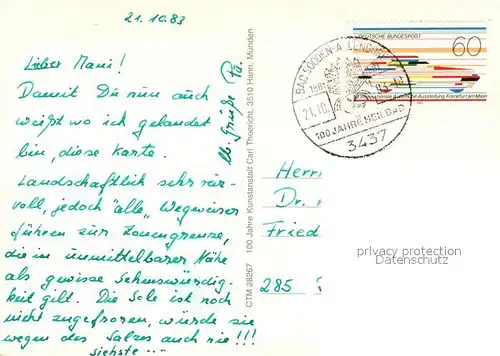 21.10.83
Lieber Mani!
Damit Du nun auch
weißt wo ich gelandet
bin, diese Karte.
Landschaftlich sehr reiz-
voll, jedoch "alle" Wegweiser
führen zur Zonengrenze,
die in unmittelbarer Nähe
als gewisse Sehenswürdig-
keit gilt. Die Sole ist noch
nicht zugefroren, würde sie
wegen des Salzes auch nie!!!
siehste...
lb. Grüße
CTM 28267 100 Jahre Kunstanstalt Carl Thoericht, 3510 Hann. Münden
DEUTSCHE BUNDESPOST
60
Internationale Ausstellung Frankfurt am Main
BAD SOODEN-ALLENDORF
1881
21.10.
100 JAHRE HEILBAD
3437
Herr
Dr.
Fried
285
privacy protection
Datenschutz